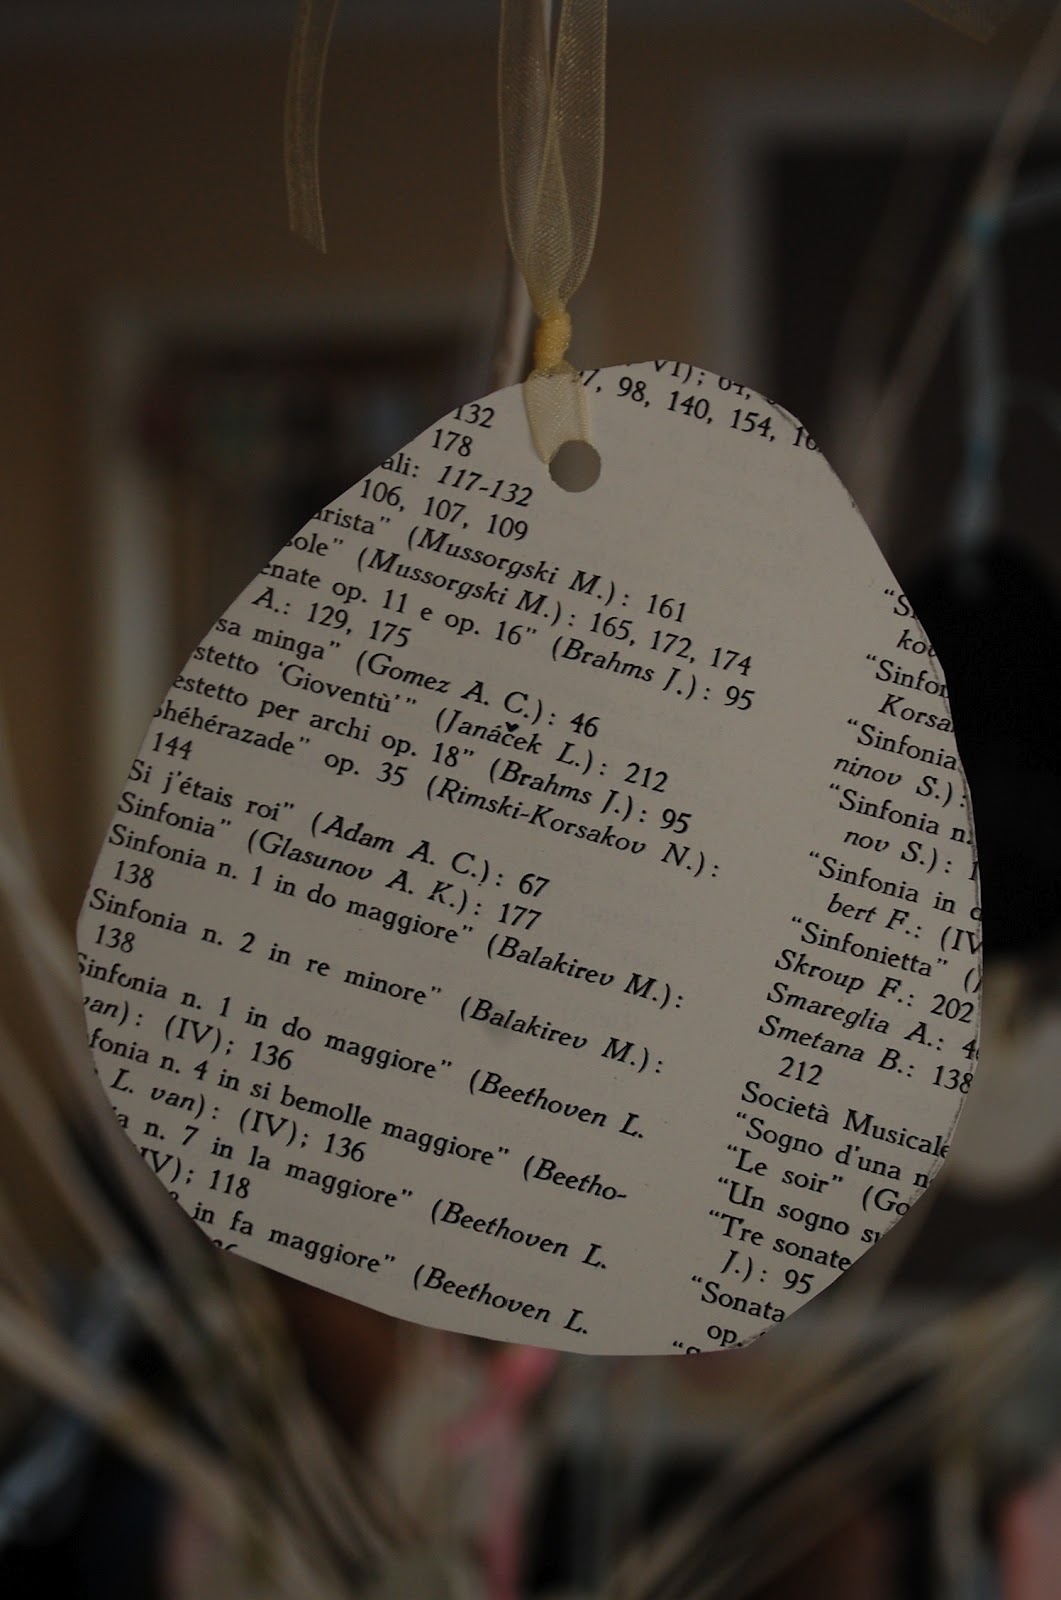 VI); 64,
97, 98, 140, 154,
132
178
ali: 117-132
106, 107, 109
arista" (Mussorgski M.): 161
sole" (Mussorgski M.): 165, 172, 174
enate op. 11 e op. 16" (Brahms J.): 95
A.: 129, 175
sa minga" (Gomez A. C.): 46
stetto 'Gioventù'" (Janáček L.): 212
estetto per archi op. 18" (Brahms J.): 95
Shéhérazade" op. 35 (Rimski-Korsakov N.):
144
Si j'étais roi" (Adam A. C.): 67
Sinfonia" (Glasunov A. K.): 177
Sinfonia n. 1 in do maggiore" (Balakirev M.):
138
Sinfonia n. 2 in re minore" (Balakirev M.):
138
Sinfonia n. 1 in do maggiore" (Beethoven L.
van): (IV); 136
nfonia n. 4 in si bemolle maggiore" (Beetho-
L. van): (IV); 136
a n. 7 in la maggiore" (Beethoven L.
IV); 118
in fa maggiore" (Beethoven L.
"Si
kov
"Sinfon
Korsa
"Sinfonia
ninov S.):
"Sinfonia n.
nov S.): 1
"Sinfonia in d
bert F.: (IV
"Sinfonietta" (J
Skroup F.: 202
Smareglia A.: 4
Smetana B.: 138
212
Società Musicale
"Sogno d'una n
"Le soir" (Go
"Un sogno su
"Tre sonate
J.): 95
"Sonata
op.